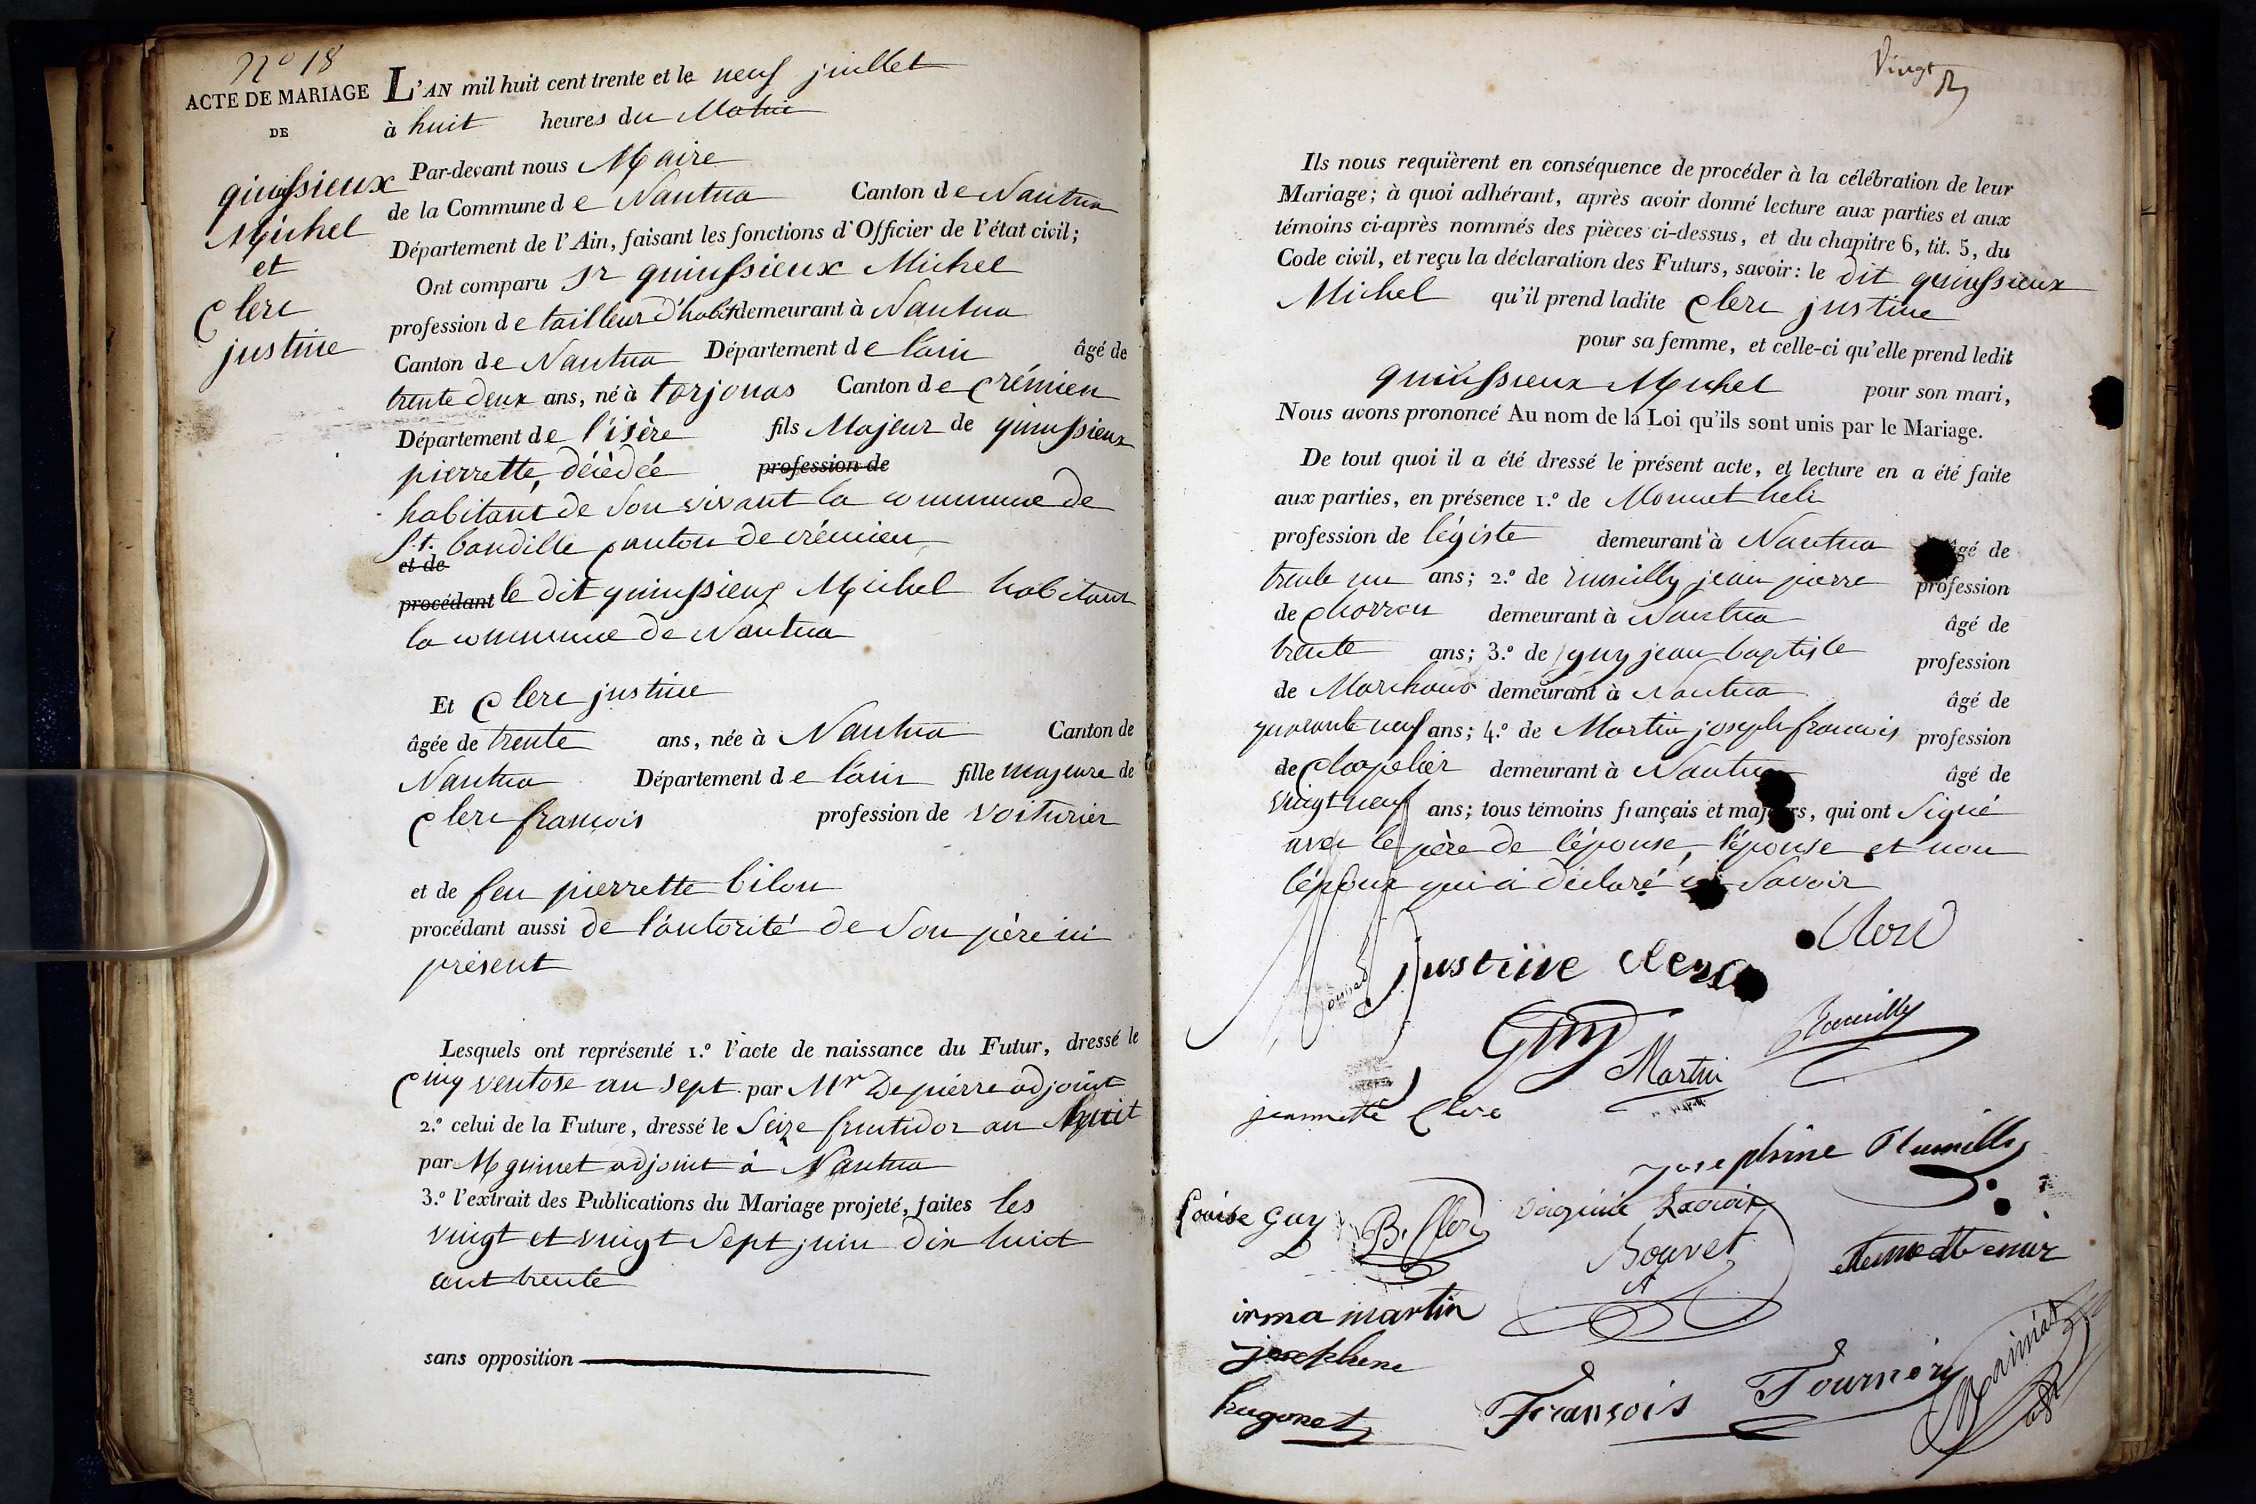 N° 18
ACTE DE MARIAGE
DE
quinssieux
Michel
et
Clerc
justine
L'AN mil huit cent trente et le neuf juillet
à huit heures du Matin
Par-devant nous Maire
de la Commune de Nantua Canton de Nantua
Département de l'Ain, faisant les fonctions d'Officier de l'état civil;
Ont comparu Sr quinssieux Michel
profession de tailleur d'habit demeurant à Nantua
Canton de Nantua Département de l'ain âgé de
trente deux ans, né à torjonas Canton de Crémieu
Département de l'isère fils Majeur de quinssieux
pierrette, décédée profession de
habitant de Son vivant la commune de
St. baudille canton de crémieu
et de
procédant le dit quinssieux Michel habitant
la commune de Nantua
Et Clerc justine
âgée de trente ans, née à Nantua Canton de
Nantua Département de l'ain fille majeure de
Clerc françois profession de voiturier
et de feu pierrette bilon
procédant aussi de l'autorité de Son père ici
présent
Lesquels ont représenté 1.º l'acte de naissance du Futur, dressé le
Cinq ventose an sept par Mr Depierre adjoint
2.º celui de la Future, dressé le Seize fructidor an huit
par M guinet adjoint à Nantua
3.º l'extrait des Publications du Mariage projeté, faites les
vingt et vingt Sept juin dix huit
cent trente
sans opposition
Vingt
Ils nous requièrent en conséquence de procéder à la célébration de leur
Mariage; à quoi adhérant, après avoir donné lecture aux parties et aux
témoins ci-après nommés des pièces ci-dessus, et du chapitre 6, tit. 5, du
Code civil, et reçu la déclaration des Futurs, savoir: le dit quinssieux
Michel qu'il prend ladite Clerc justine
pour sa femme, et celle-ci qu'elle prend ledit
quinssieux Michel pour son mari,
Nous avons prononcé Au nom de la Loi qu'ils sont unis par le Mariage.
De tout quoi il a été dressé le présent acte, et lecture en a été faite
aux parties, en présence 1.º de Monnet heli
profession de légiste demeurant à Nantua âgé de
trente un ans; 2.º de rumilly jean pierre profession
de charron demeurant à Nantua âgé de
trente ans; 3.º de guy jean baptiste profession
de Marchand demeurant à Nantua âgé de
quarante neuf ans; 4.º de Martin joseph francois profession
de Chapelier demeurant à Nantua âgé de
vingt neuf ans; tous témoins français et majeurs, qui ont Signé
avec le père de l'épouse, l'épouse et non
l'époux qui a déclaré ne Savoir
Clerc
justine clerc
Guy
Rumilly
Martin
jeannette Clerc
josephine Rumilly
Louise Guy
B. Clerc
virginie Lacroix
Bouvet
irma martin
josephine
hugonet
François Fournery